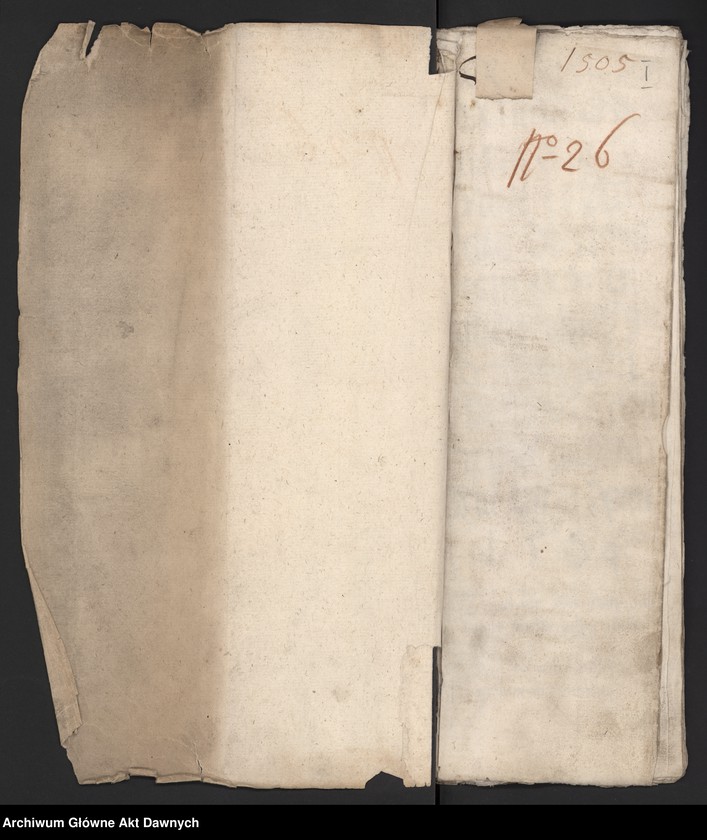 1505 I
No 26
Archiwum Główne Akt Dawnych